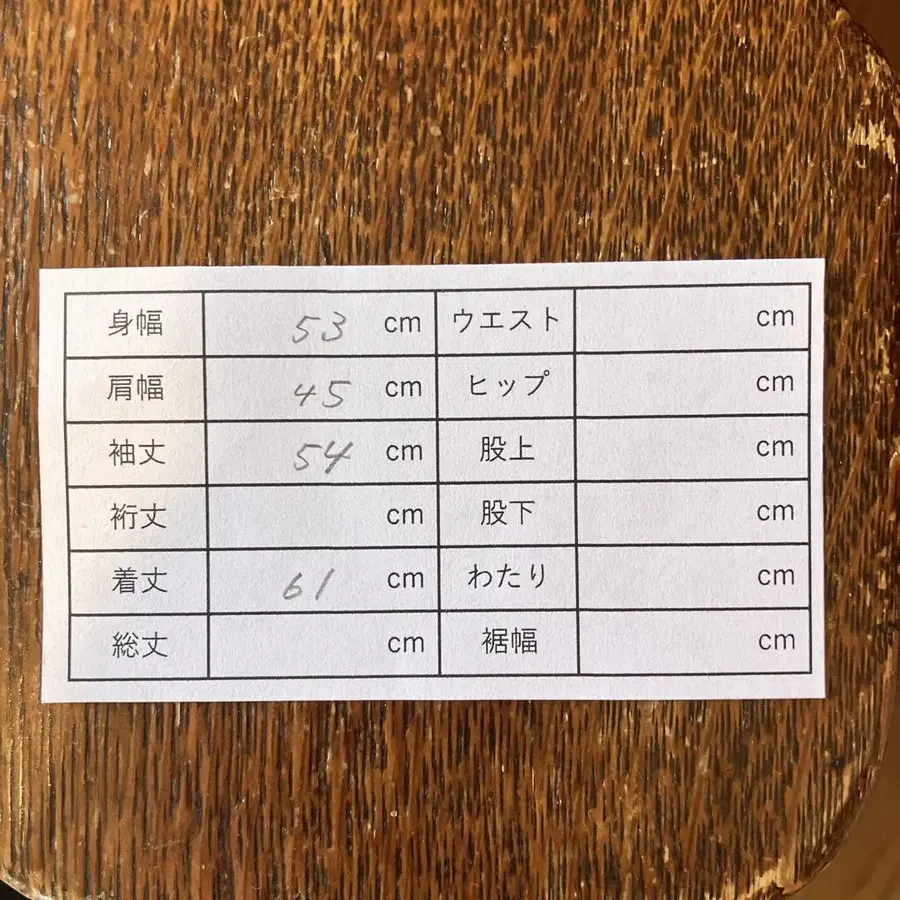 身幅 53 cm ウエスト cm
肩幅 45 cm ヒップ cm
袖丈 54 cm 股上 cm
裄丈 cm 股下 cm
着丈 61 cm わたり cm
総丈 cm 裾幅 cm